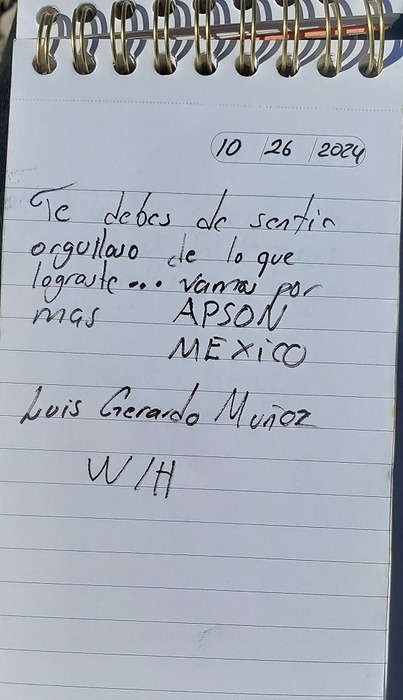 10 / 26 / 2024
Te debes de sentir
orgulloso de lo que
lograste... vamos por
mas APSON
MEXiCO
Luis Gerardo Muñoz
W/H